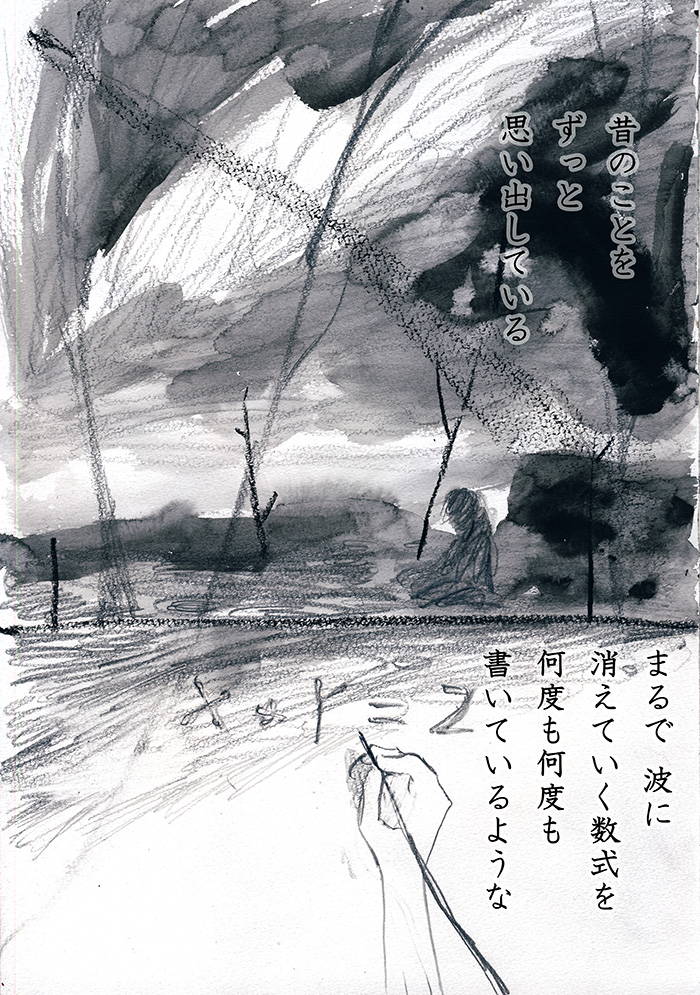 昔のことを
ずっと
思い出している
まるで 波に
消えていく数式を
何度も何度も
書いているような